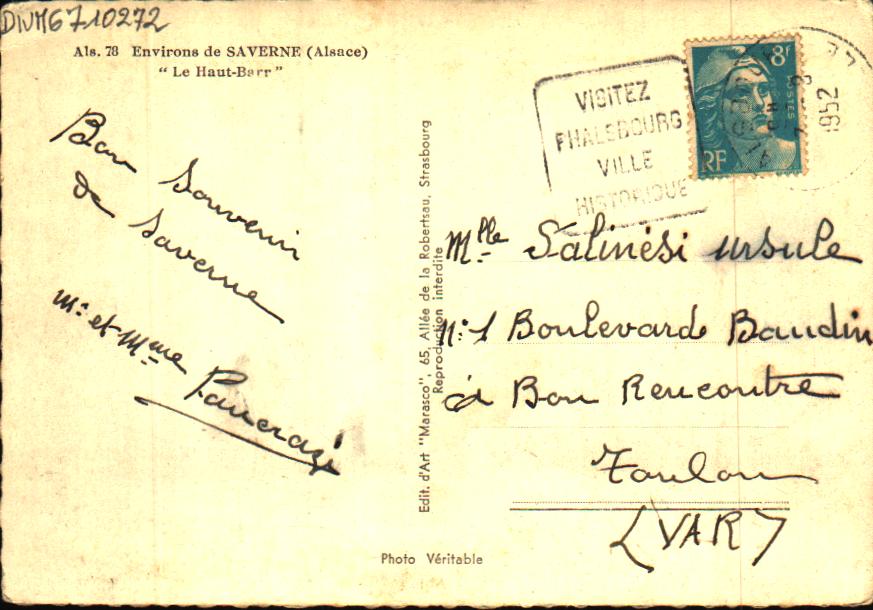 DIVM6710272
Als. 78 Environs de SAVERNE (Alsace)
" Le Haut-Barr "
Bon Souvenir
de Saverne
Mr et Mme Pancrazi
Edit. d'Art "Marasco", 65, Allée de la Robertsau, Strasbourg
Reproduction interdite
VISITEZ
PHALSBOURG
VILLE
HISTORIQUE
8f
POSTES
RF
1952
Mlle Salinési Ursule
N: 1 Boulevarde Baudin
à Bon Rencontre
Toulon
(VAR)
Photo Véritable